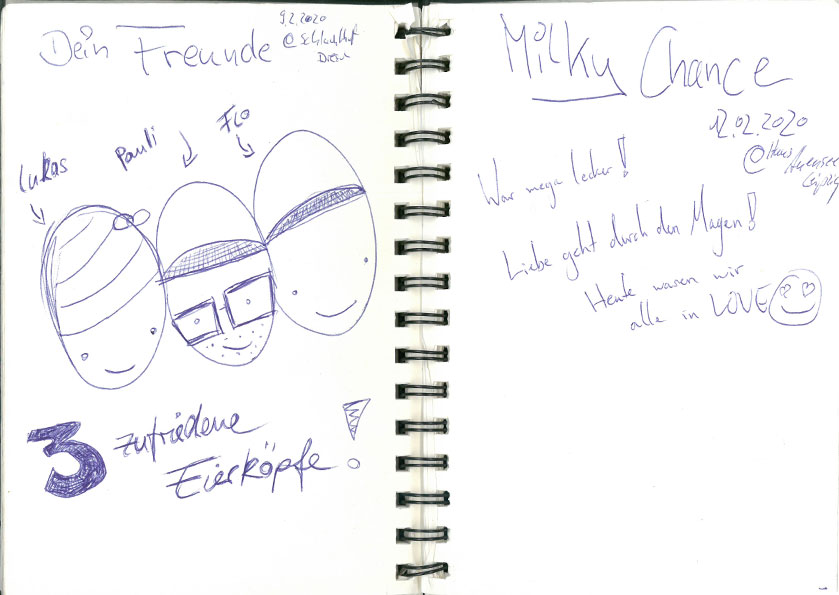 Dein Freunde
9.2.2020
@Schlachthof
Lukas
Pauli
FLO
3 zufriedene
Eierköpfe!
Milky Chance
12.02.2020
@Haus
Auensee
Leipzig
War mega lecker!
Liebe geht durch den Magen!
Heute waren wir
alle in LOVE